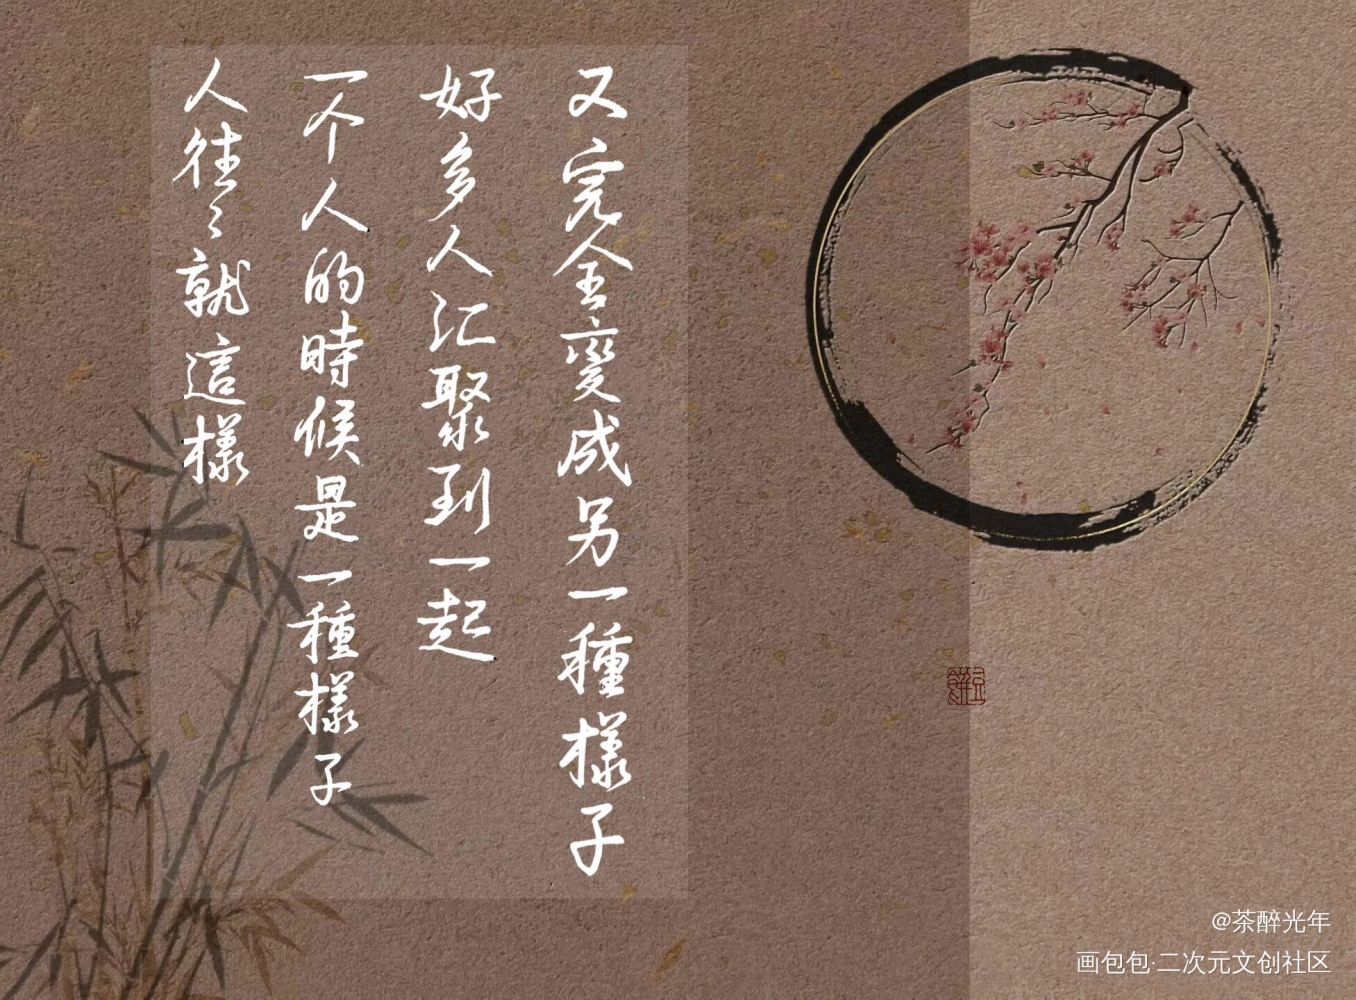 人往〻就這樣
一个人的時候是一種樣子
好多人汇聚到一起
又完全變成另一種樣子
@茶醉光年
画包包·二次元文创社区